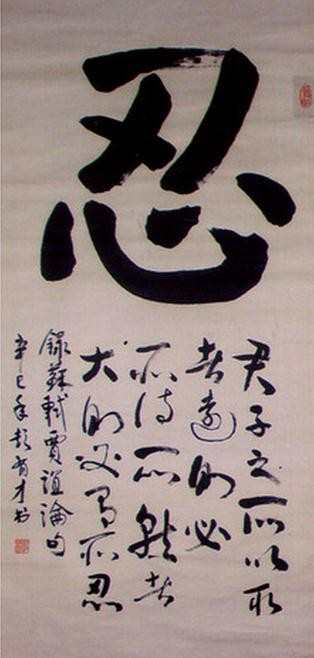 忍
君子之所以取
者遠則必
所待所就者
大則必有所忍
錄蘇軾賈誼論句
辛巳年彭才書